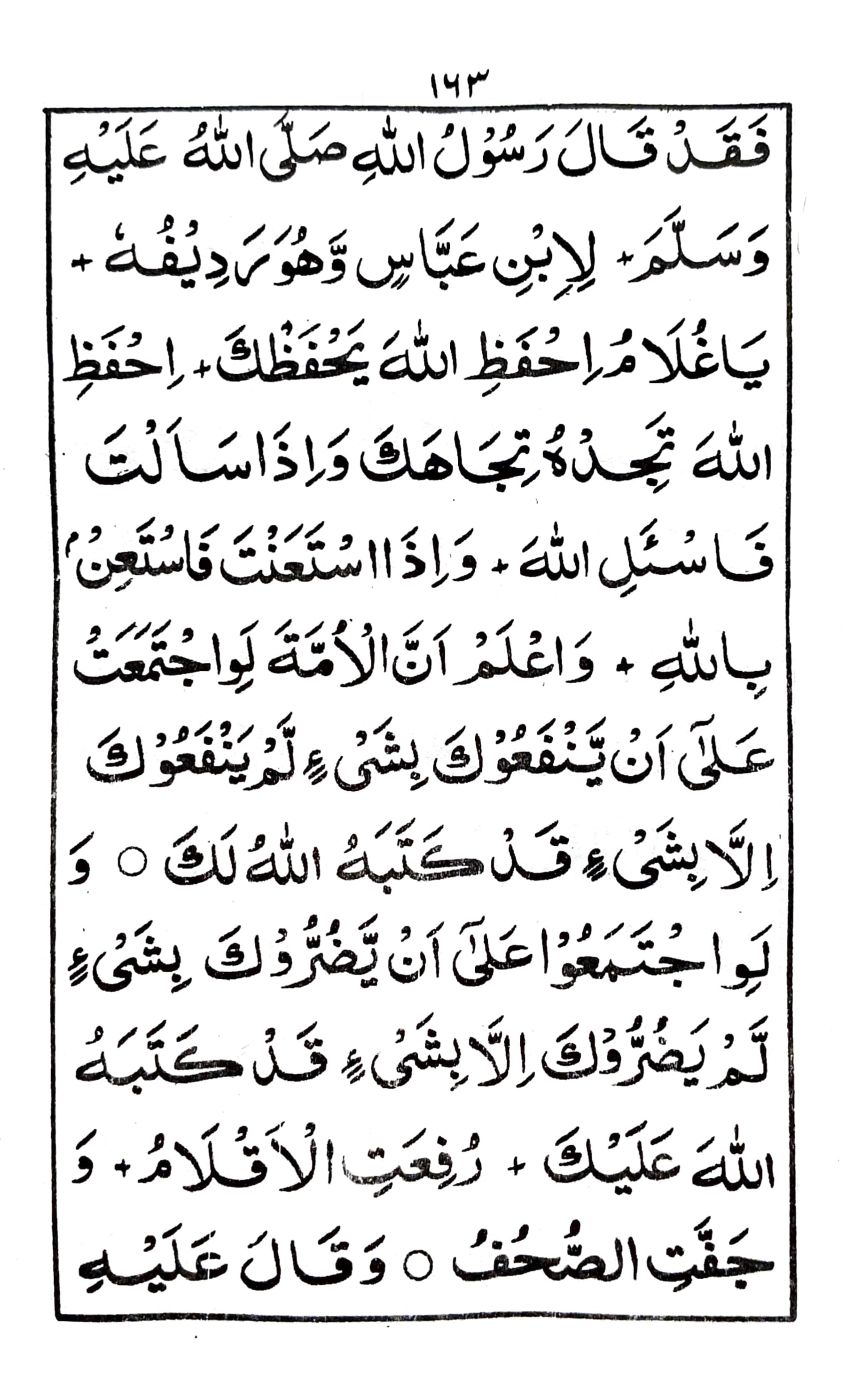 ١٦٣
فَقَدْ قَالَ رَسُوْلُ اللهِ صَلَّى اللهُ عَلَيْهِ
وَسَلَّمَ + لِاِبْنِ عَبَّاسٍ وَّهُوَ رَدِيْفُهٗ +
يَا غُلَامُ اِحْفَظِ اللهَ يَحْفَظْكَ + اِحْفَظِ
اللهَ تَجِدْهُ تِجَاهَكَ وَاِذَا سَاَلْتَ
فَاسْئَلِ اللهَ + وَاِذَا اسْتَعَنْتَ فَاسْتَعِنْ م
بِاللهِ + وَاعْلَمْ اَنَّ الْاُمَّةَ لَوِ اجْتَمَعَتْ
عَلىٰٓ اَنْ يَّنْفَعُوْكَ بِشَیْءٍ لَّمْ يَنْفَعُوْكَ
اِلَّا بِشَیْءٍ قَدْ كَتَبَهُ اللهُ لَكَ ○ وَ
لَوِ اجْتَمَعُوْا عَلىٰٓ اَنْ يَّضُرُّوْكَ بِشَیْءٍ
لَّمْ يَضُرُّوْكَ اِلَّا بِشَیْءٍ قَدْ كَتَبَهُ
اللهَ عَلَيْكَ + رُفِعَتِ الْاَقْلَامُ + وَ
جَفَّتِ الصُّحُفُ ○ وَقَالَ عَلَيْهِ